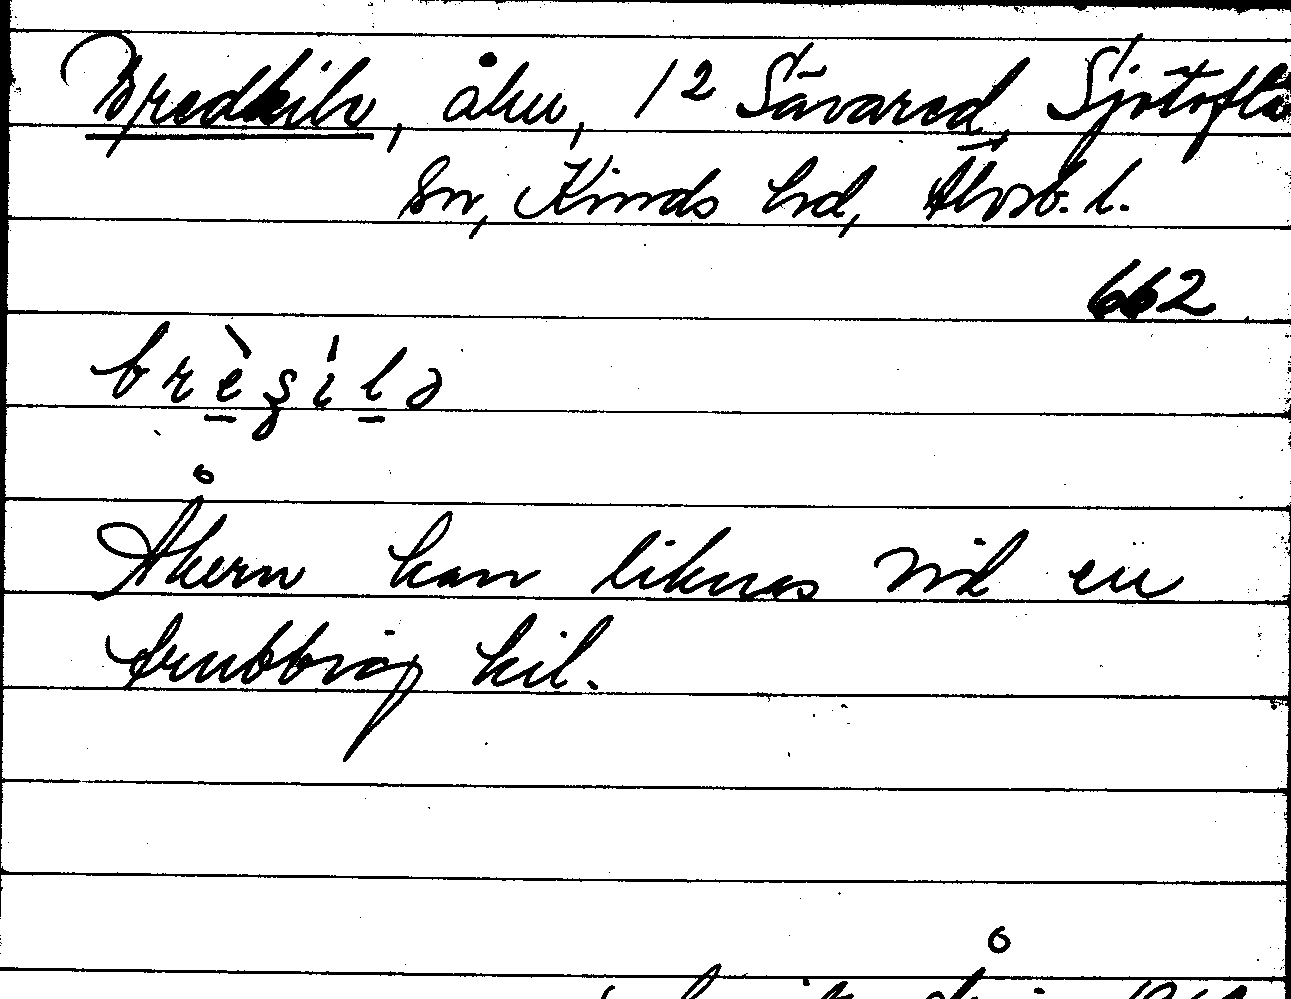 Bredkiln, åker, 12 Sävared, Sjötofta
sn, Kinds hd, Älvsb. l.
662
brèʂìlə
Åkern kan liknas vid en
trubbig kil.